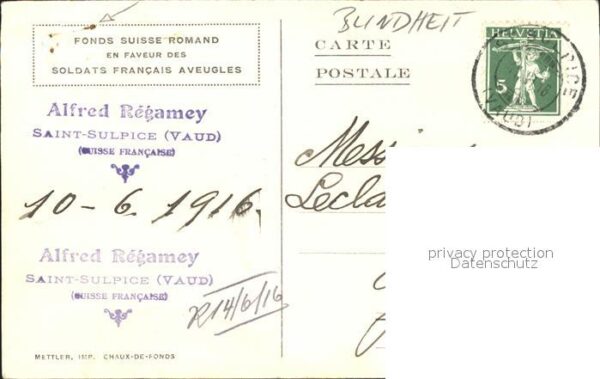 FONDS SUISSE ROMAND
EN FAVEUR DES
SOLDATS FRANÇAIS AVEUGLES
BLINDHEIT
CARTE
POSTALE
HELVETIA
5
(VAUD)
Alfred Régamey
SAINT-SULPICE (VAUD)
(SUISSE FRANÇAISE)
10-6.1916.
Alfred Régamey
SAINT-SULPICE (VAUD)
(SUISSE FRANÇAISE)
R14/6/16
METTLER, IMP. CHAUX-DE-FONDS
privacy protection
Datenschutz